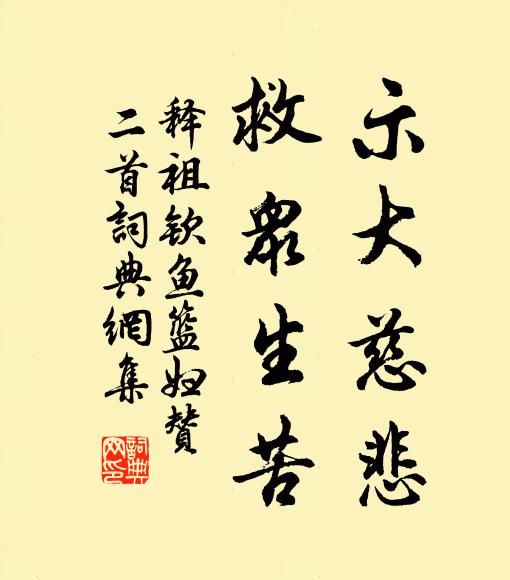 示大慈悲
救衆生苦
释祖钦鱼籃妇贊
二首詞典網集
詞典网印